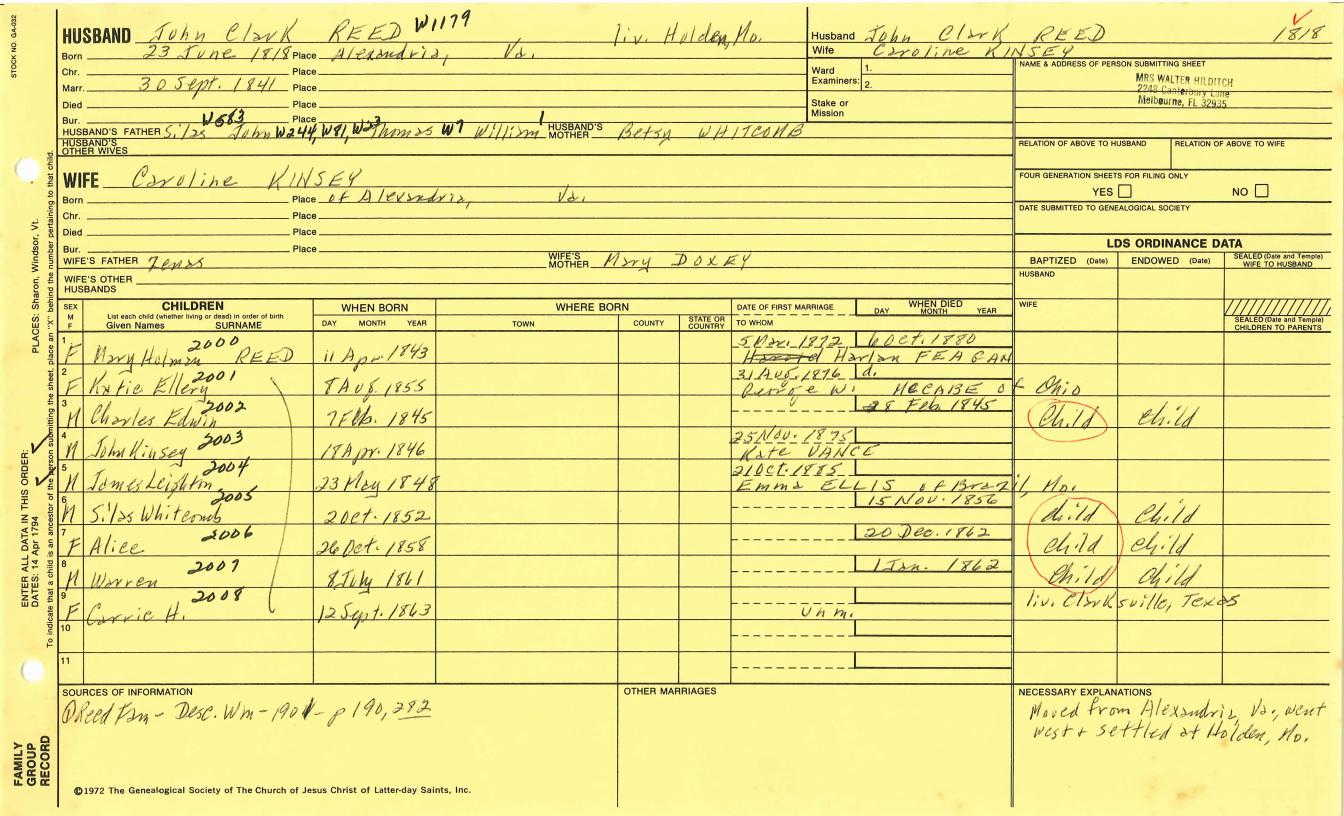 STOCK NO. GA-032
HUSBAND John Clark REED W1179 liv. Holden, Mo.
Born 23 June 1818 Place Alexandria, Va.
Chr. Place
Marr. 30 Sept. 1841 Place
Died Place
Bur. Place
W583
HUSBAND'S FATHER Silas John W244, W81, W23 Thomas W7 William 1 HUSBAND'S MOTHER Betsy WHITCOMB
HUSBAND'S OTHER WIVES
WIFE Caroline KINSEY
Born Place of Alexandria, Va.
Chr. Place
Died Place
Bur. Place
WIFE'S FATHER Zenas WIFE'S MOTHER Mary DOXEY
WIFE'S OTHER HUSBANDS
Husband John Clark REED 1818
Wife Caroline KINSEY
Ward Examiners: 1. 2.
Stake or Mission
NAME & ADDRESS OF PERSON SUBMITTING SHEET
MRS WALTER HILDITCH
2243 Canterbury Lane
Melbourne, FL 32935
RELATION OF ABOVE TO HUSBAND RELATION OF ABOVE TO WIFE
FOUR GENERATION SHEETS FOR FILING ONLY
YES NO
DATE SUBMITTED TO GENEALOGICAL SOCIETY
LDS ORDINANCE DATA
BAPTIZED (Date) ENDOWED (Date) SEALED (Date and Temple) WIFE TO HUSBAND
HUSBAND
WIFE
SEALED (Date and Temple) CHILDREN TO PARENTS
SEX M F
CHILDREN
List each child (whether living or dead) in order of birth
Given Names SURNAME
WHEN BORN
DAY MONTH YEAR
WHERE BORN
TOWN COUNTY STATE OR COUNTRY
DATE OF FIRST MARRIAGE
TO WHOM
WHEN DIED
DAY MONTH YEAR
1 2000 5 Mar. 1872 6 Oct. 1880
F Mary Holman REED 11 Apr. 1843 Harold Harlan FEAGAN
2 2001 31 Aug. 1876 d.
F Katie Ellery 8 Aug. 1855 George W. McCABE of Ohio
3 2002 28 Feb. 1845
M Charles Edwin 7 Feb. 1845 Child Child
4 2003 25 Nov. 1875
M John Kinsey 18 Apr. 1846 Kate VANCE
5 2004 21 Oct. 1885
M James Leighton 23 May 1848 Emma ELLIS of Brazil, Mo.
6 2005 15 Nov. 1856
M Silas Whitcomb 2 Oct. 1852 child Child
7 2006 20 Dec. 1862
F Alice 26 Oct. 1858 child child
8 2007 1 Jan. 1862
M Warren 8 July 1861 Child Child
9 2008 liv. Clarksville, Texas
F Carrie H. 12 Sept. 1863 unm.
10
11
SOURCES OF INFORMATION
① Reed Fam - Desc. Wm - 1901 - p 190, 282
OTHER MARRIAGES
NECESSARY EXPLANATIONS
Moved from Alexandria, Va., went
west + settled at Holden, Mo.
©1972 The Genealogical Society of The Church of Jesus Christ of Latter-day Saints, Inc.
FAMILY GROUP RECORD
ENTER ALL DATA IN THIS ORDER:
DATES: 14 Apr 1794 PLACES: Sharon, Windsor, Vt.
To indicate that a child is an ancestor of the person submitting the sheet, place an "X" behind the number pertaining to that child.